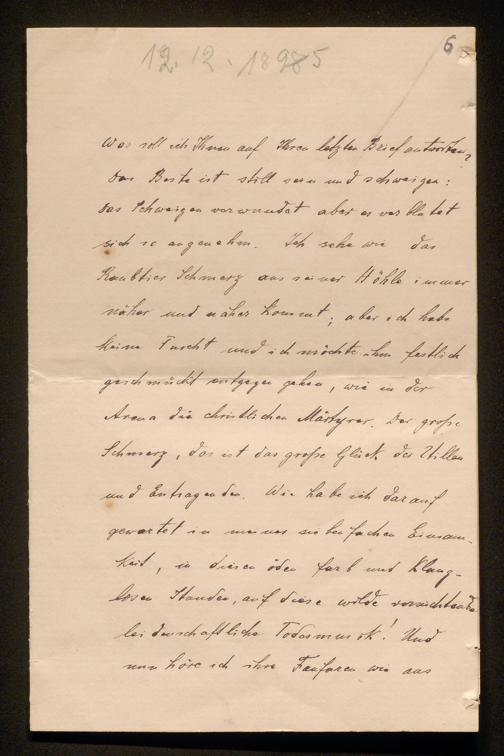 12. 12. 1895
6
Was soll ich Ihnen auf Ihren letzten Brief antworten?
Das Beste ist still sein und schweigen:
das Schweigen verwundet aber es verblutet
sich so angenehm. Ich sehe wie das
Raubtier Schmerz aus seiner Höhle immer
näher und näher kommt; aber ich habe
keine Furcht und ich möchte ihm festlich
geschmückt entgegen gehen, wie in der
Arena die christlichen Märtyrer. Der große
Schmerz, das ist das große Glück der Stillen
und Entsagenden. Wie habe ich darauf
gewartet in meiner siebenfachen Einsam-
keit, in diesen öden farb und klang-
losen Stunden, auf diese wilde vernichtende
leidenschaftliche Todesmusik! Und
nun höre ich ihre Fanfaren wie aus